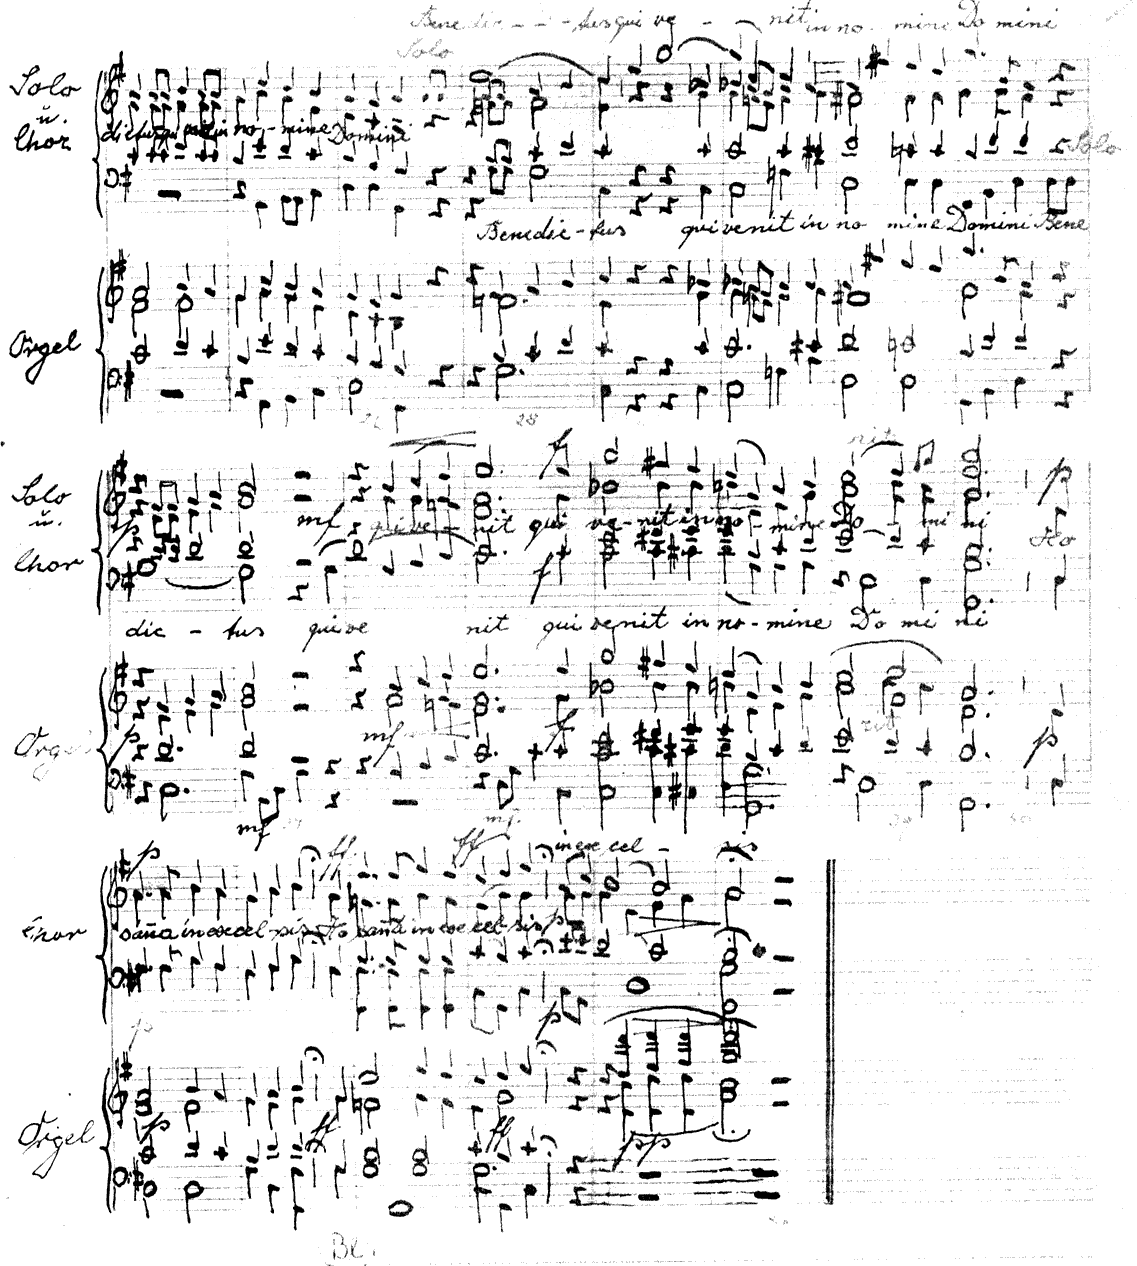 Benedic - - - tus qui ve - - nit in no - mine Domini
Solo
Solo
u.
Chor
dictus qui venit in no - mine Domini
Solo
Benedic - tus qui venit in no mine Domini Bene
Orgel
28
f
rit
p
Solo
u.
Chor
p
mf qui ve - nit qui ve - nit in no - mine Do - mi ni
Ho
f
dic - tus qui ve nit qui venit in no - mine Do mi ni
Orgel
p
mf
f
rit
p
mf
mf
p
ff
ff
in excel - sis
Chor
sana in excel - sis Ho sana in excel - sis
p
p
p
Orgel
p
ff
ff
pp